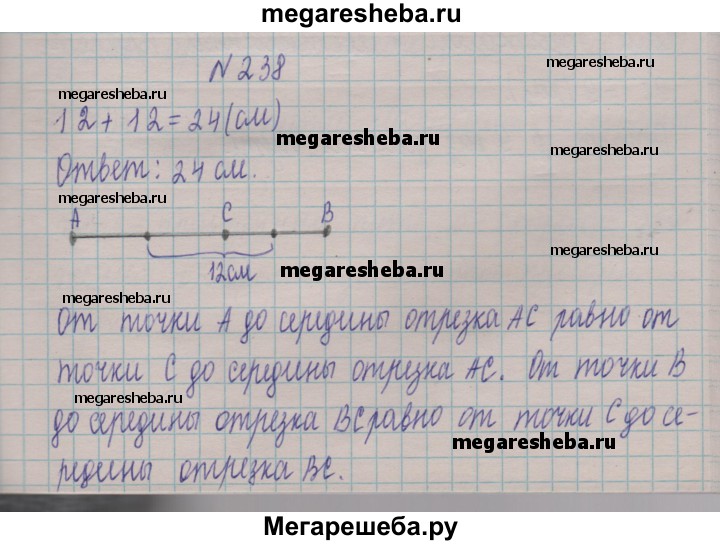 megaresheba.ru
N 238
megaresheba.ru
megaresheba.ru
12 + 12 = 24 (см)
megaresheba.ru
Ответ: 24 см.
megaresheba.ru
megaresheba.ru
A C B
megaresheba.ru
12 см
megaresheba.ru
megaresheba.ru
От точки А до середины отрезка АС равно от
точки С до середины отрезка АС. От точки В
megaresheba.ru
до середины отрезка ВС равно от точки С до се-
megaresheba.ru
редины отрезка ВС.
Мегарешеба.ру